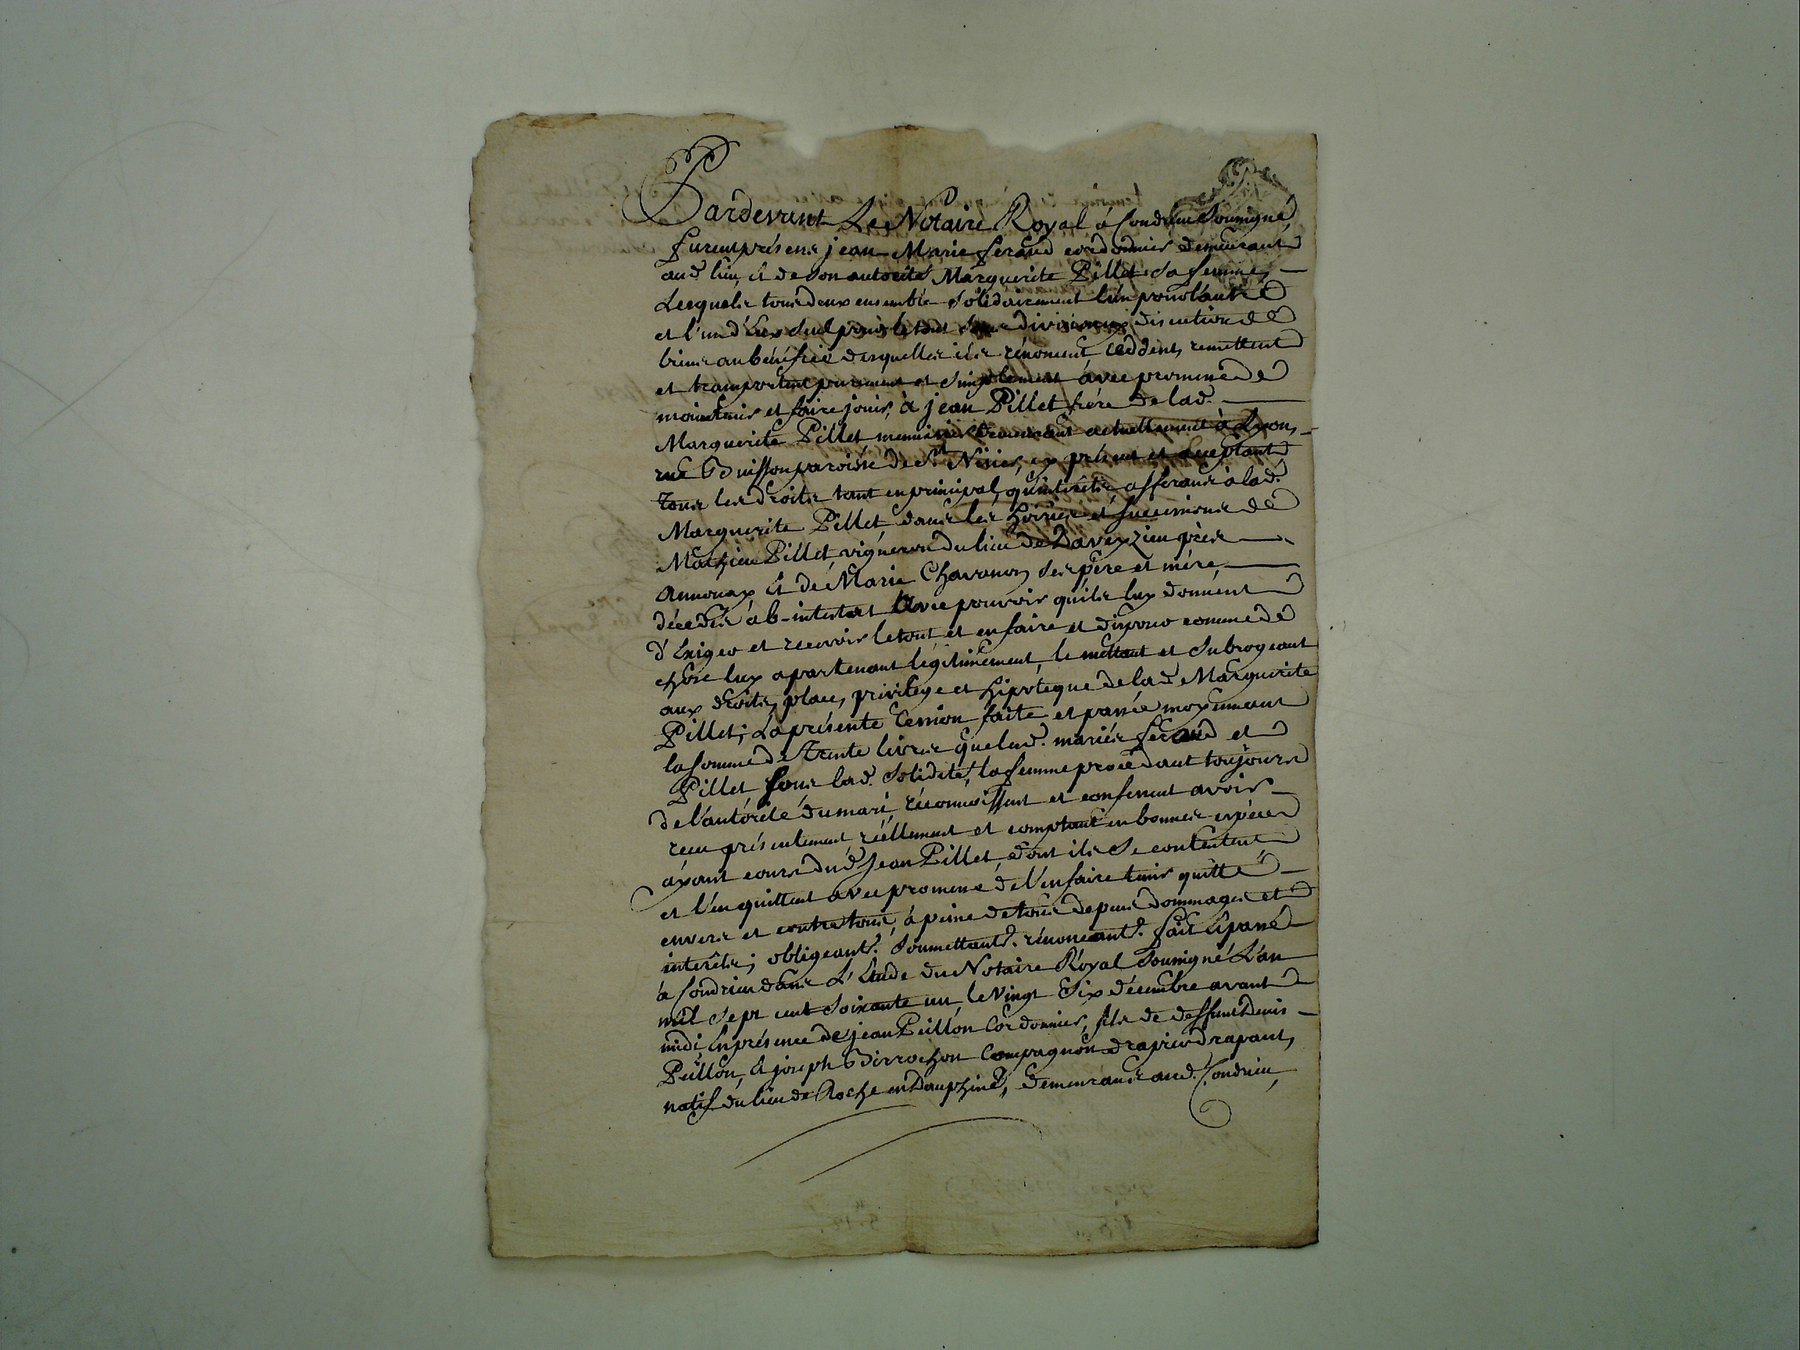 Pardevant Le Notaire Royal à Condrieu Soussigné,
furent présens jean-Marie feraud cordonnier demeurant
aud. lieu, & de son autorité Marguerite Pillet sa femme,
Lesquels tous deux ensemble solidairement l'un pour l'autre
et l'un d'Eux seul pour le tout sans division ny discution de
biens au bénéfice desquelles ils rénoncent cèddent, remettent
et transportent purement et simplement avec promesse de
maintenir et faire jouir, à jean Pillet frére de lad.
Marguerite Pillet demeurant actuellement à Lyon,
rue Buisson paroisse de St. Nizier, cy présent et acceptant
Tous les droits tant en principal, qu'intérêts afferants à lad.
Marguerite Pillet dans les hoiries et successions de
Mathieu Pillet vigneron du lieu de Davezieu près
annonay & de Marie Chavanon ses père et mére,
décédés ab-intestat Avec pouvoir qu'ils luy donnent
d'Exiger et recevoir le tout et en faire et disposer comme de
chose luy apartenant légitimement, le mettant et subrogeant
aux droits, place, privilége et hipotèque de lad. Marguerite
Pillet; La présente Cession faite et passée moyennant
la somme de Trente livres que lesd. mariés feraud et
Pillet sous lad. solidité, la femme procédant toujours
de l'autorité du mari, réconnoissent et confessent avoir
reçu présentement, réellement et comptant en bonnes espèces
ayant cours dud. Jean Pillet, dont ils se contentent
et l'en quittent avec promesse de l'en faire tenir quitte
envers et contre tous, à peine de tous dépens dommages et
interêts; obligeant. soumettant. rénonceant. fait & passé
à Condrieu dans L'Etude du Notaire Royal soussigné L'an
mil sept cent soixante un le vingt six décembre avant
midi, En présence de jean Peillon Cordonnier, fils de deffunt Denis
Peillon, & joseph Birrochon Compagnon drapier drapant,
natif du lieu de Roche en Dauphiné, demeurants aud. Condrieu,